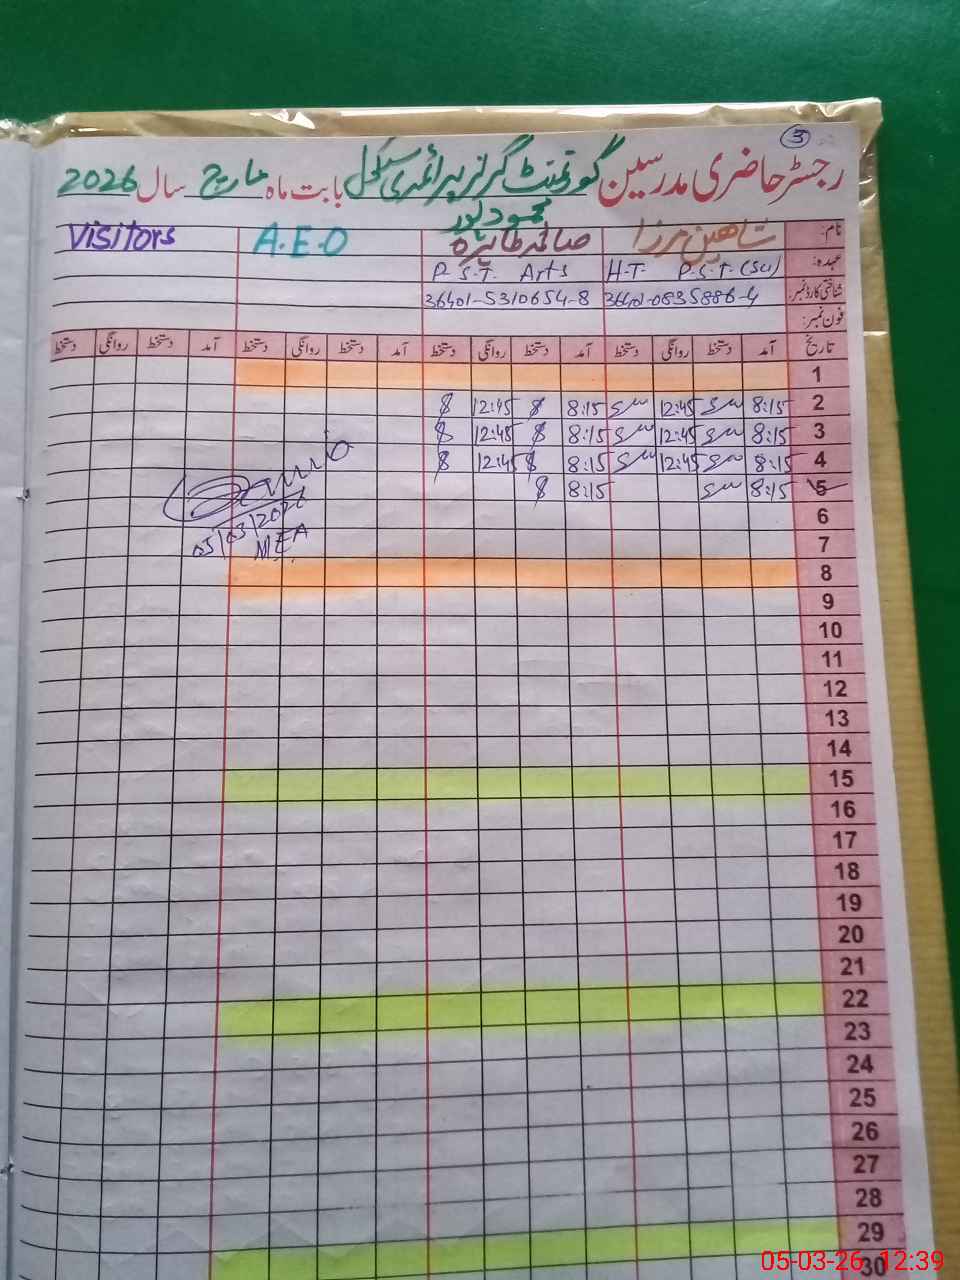 3
رجسٹر حاضری مدرسین گورنمنٹ گرلز پرائمری سکول بابت ماہ مارچ سال 2026
محمود پور
نام: شاہین مرزا صائمہ طاہرہ A.E.O Visitors
عہدہ: H.T. P.S.T.(Sci) P.S.T. Arts
شناختی کارڈ نمبر: 36401-0835886-4 36401-5310654-8
فون نمبر:
تاریخ آمد دستخط روانگی دستخط آمد دستخط روانگی دستخط آمد دستخط روانگی دستخط آمد دستخط روانگی دستخط
1
2 8:15 12:45 8:15 12:45
3 8:15 12:45 8:15 12:45
4 8:15 12:45 8:15 12:45
5 8:15 8:15
05/03/2026
MEA
6
7
8
9
10
11
12
13
14
15
16
17
18
19
20
21
22
23
24
25
26
27
28
29
30
05-03-26 12:39